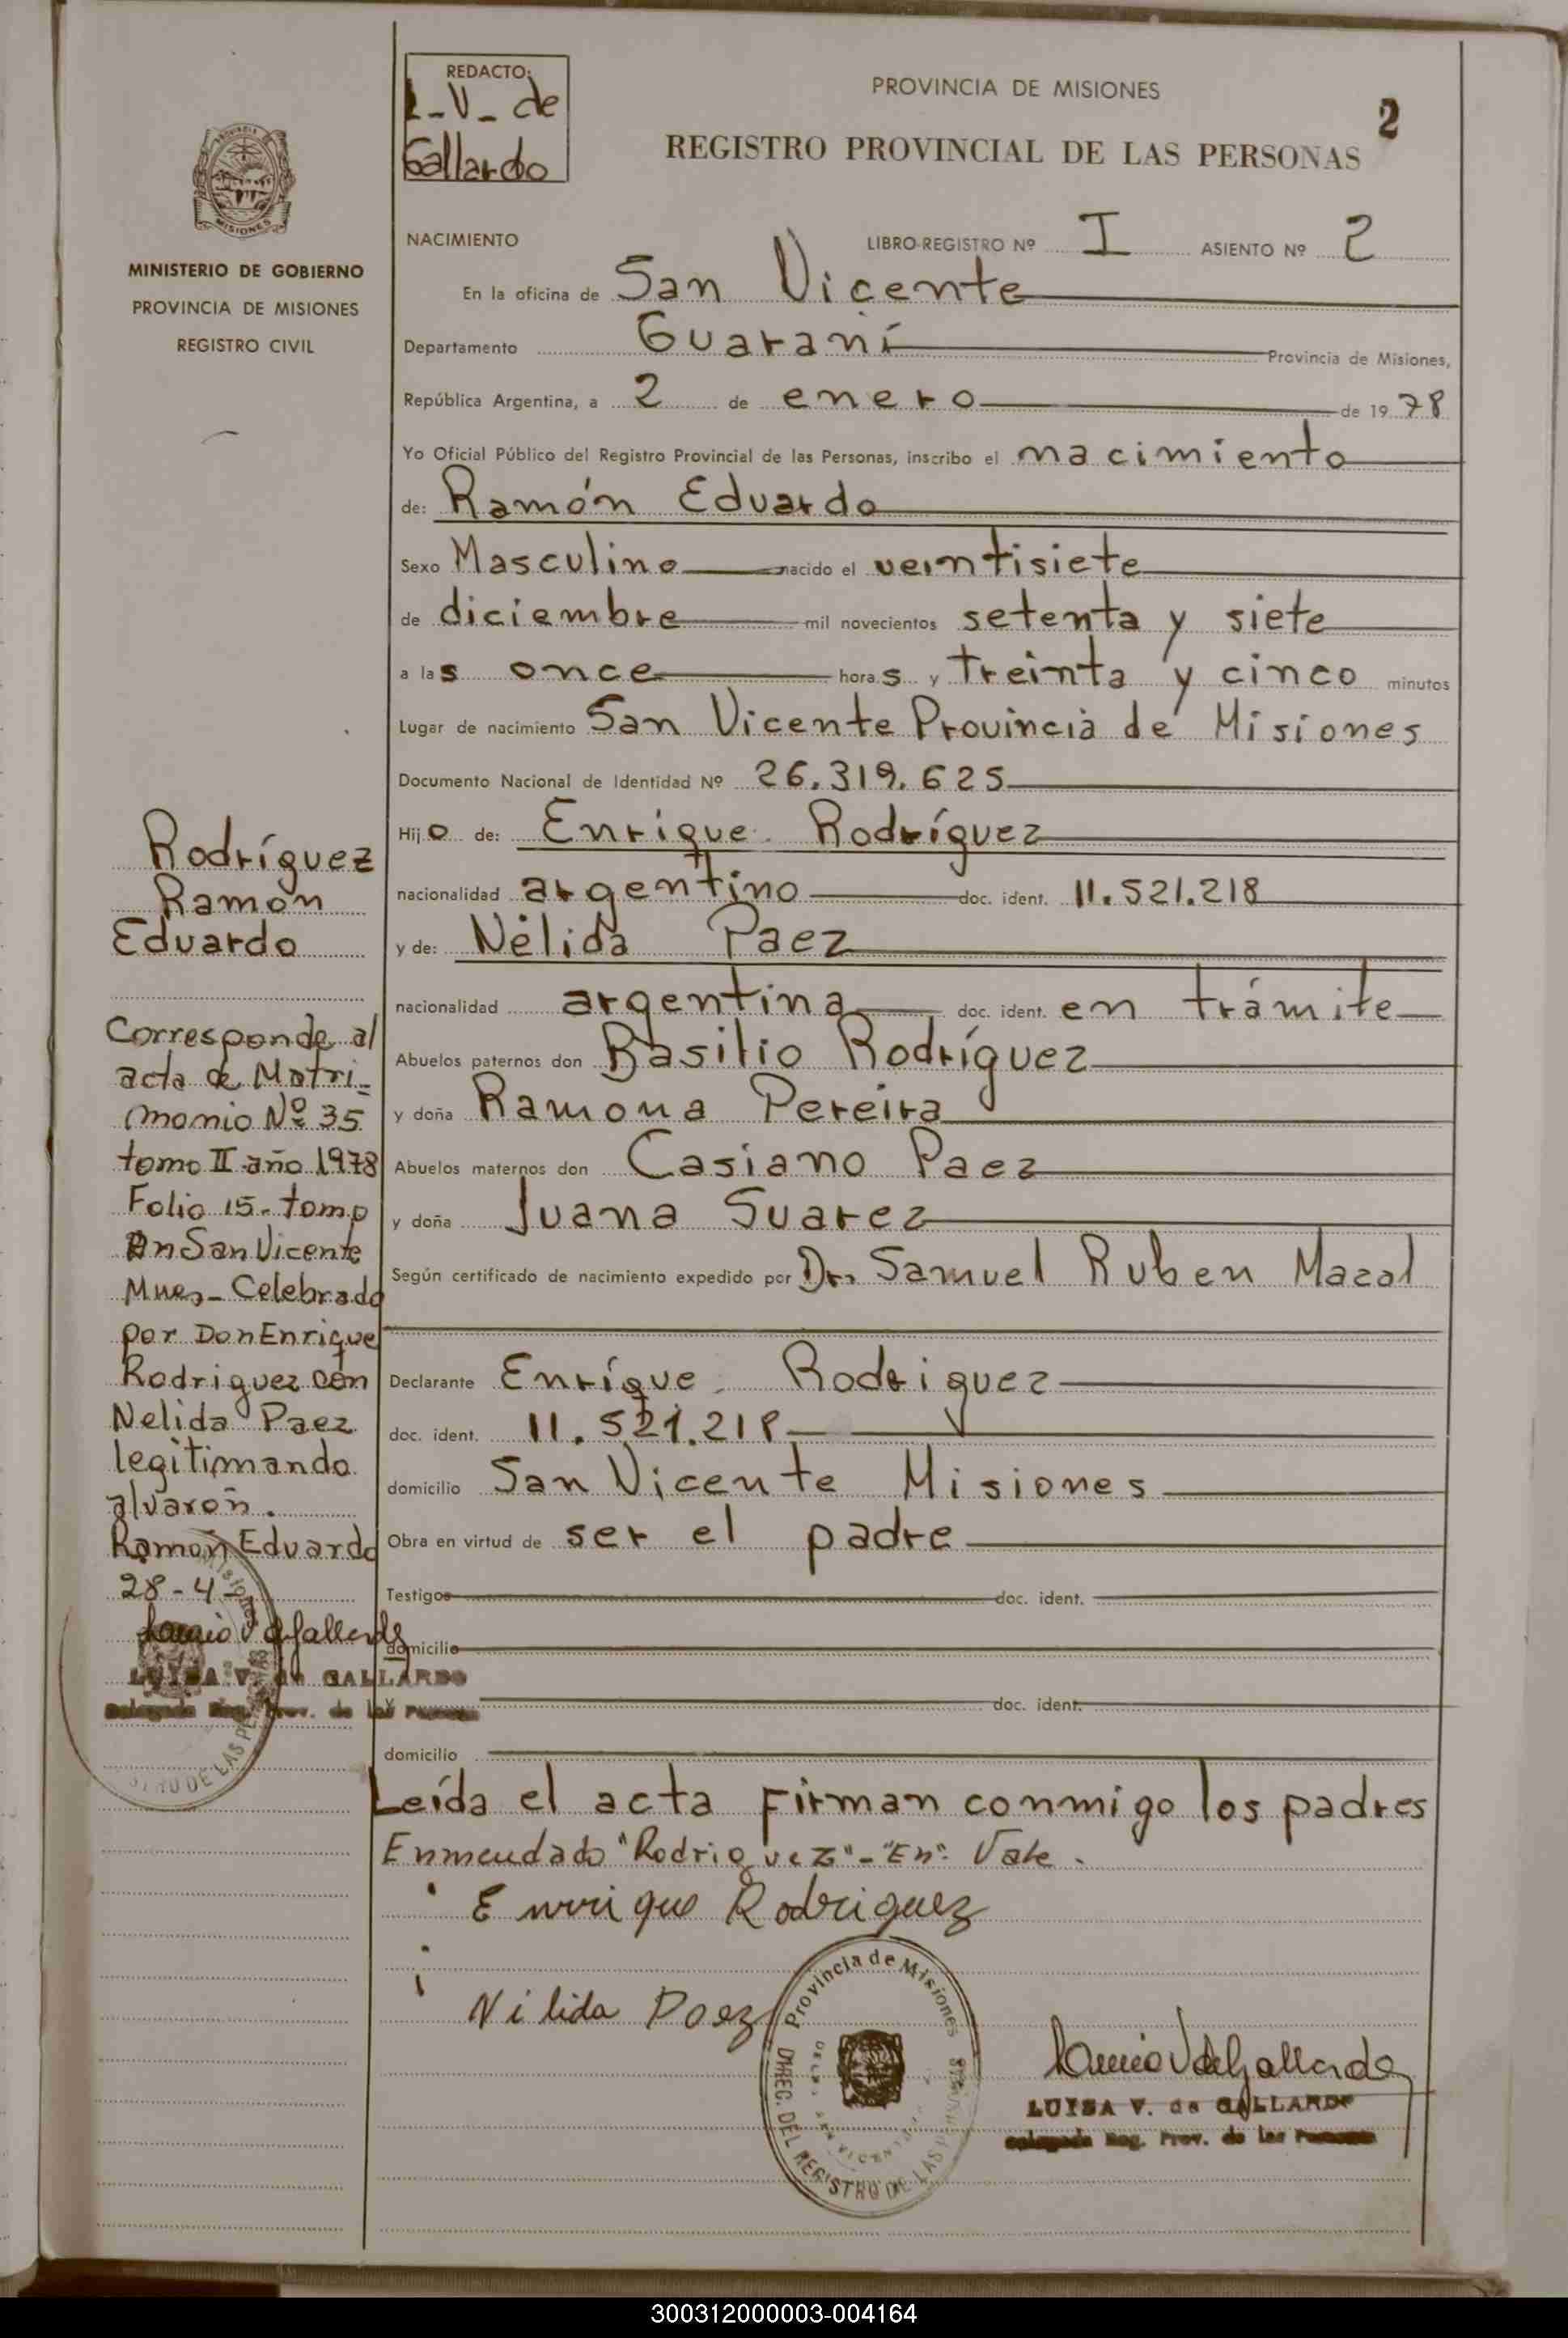 REDACTO:
L-V- de
Gallardo
PROVINCIA DE MISIONES
2
REGISTRO PROVINCIAL DE LAS PERSONAS
MISIONES
MINISTERIO DE GOBIERNO
PROVINCIA DE MISIONES
REGISTRO CIVIL
NACIMIENTO LIBRO-REGISTRO Nº I ASIENTO Nº 2
En la oficina de San Vicente
Departamento Guaraní Provincia de Misiones,
República Argentina, a 2 de enero de 1978
Yo Oficial Público del Registro Provincial de las Personas, inscribo el nacimiento
de: Ramón Eduardo
Sexo Masculino nacido el veintisiete
de diciembre mil novecientos setenta y siete
a las once horas y treinta y cinco minutos
Lugar de nacimiento San Vicente Provincia de Misiones
Documento Nacional de Identidad Nº 26.319.625
Hijo de: Enrique Rodríguez
nacionalidad argentino doc. ident. 11.521.218
y de: Nélida Paez
nacionalidad argentina doc. ident. en trámite
Abuelos paternos don Basilio Rodríguez
y doña Ramona Pereira
Abuelos maternos don Casiano Paez
y doña Juana Suarez
Según certificado de nacimiento expedido por Dr. Samuel Ruben Mazal
Declarante Enríque Rodriguez
doc. ident. 11.521.218
domicilio San Vicente Misiones
Obra en virtud de ser el padre
Testigos doc. ident.
domicilio
y doc. ident.
domicilio
Leída el acta Firman conmigo los padres
Enmendado "Rodriguez"-"En": Vale.
Enrrique Rodriguez
Nilida Paez
Provincia de Misiones
DIREC. DEL REGISTRO DE LAS
LUISA V. de GALLARDO
Delegada Reg. Prov. de las Personas
Rodríguez
Ramón
Eduardo
Corresponde al
acta de Matri-
monio Nº 35
tomo II año 1978
Folio 15- tomo
En San Vicente
Mnes- Celebrado
por Don Enrique
Rodriguez con
Nelida Paez
legitimando
al varon.
Ramon Eduardo
28-4-
LUISA V. de GALLARDO
Delegada Reg. Prov. de las Personas
300312000003-004164